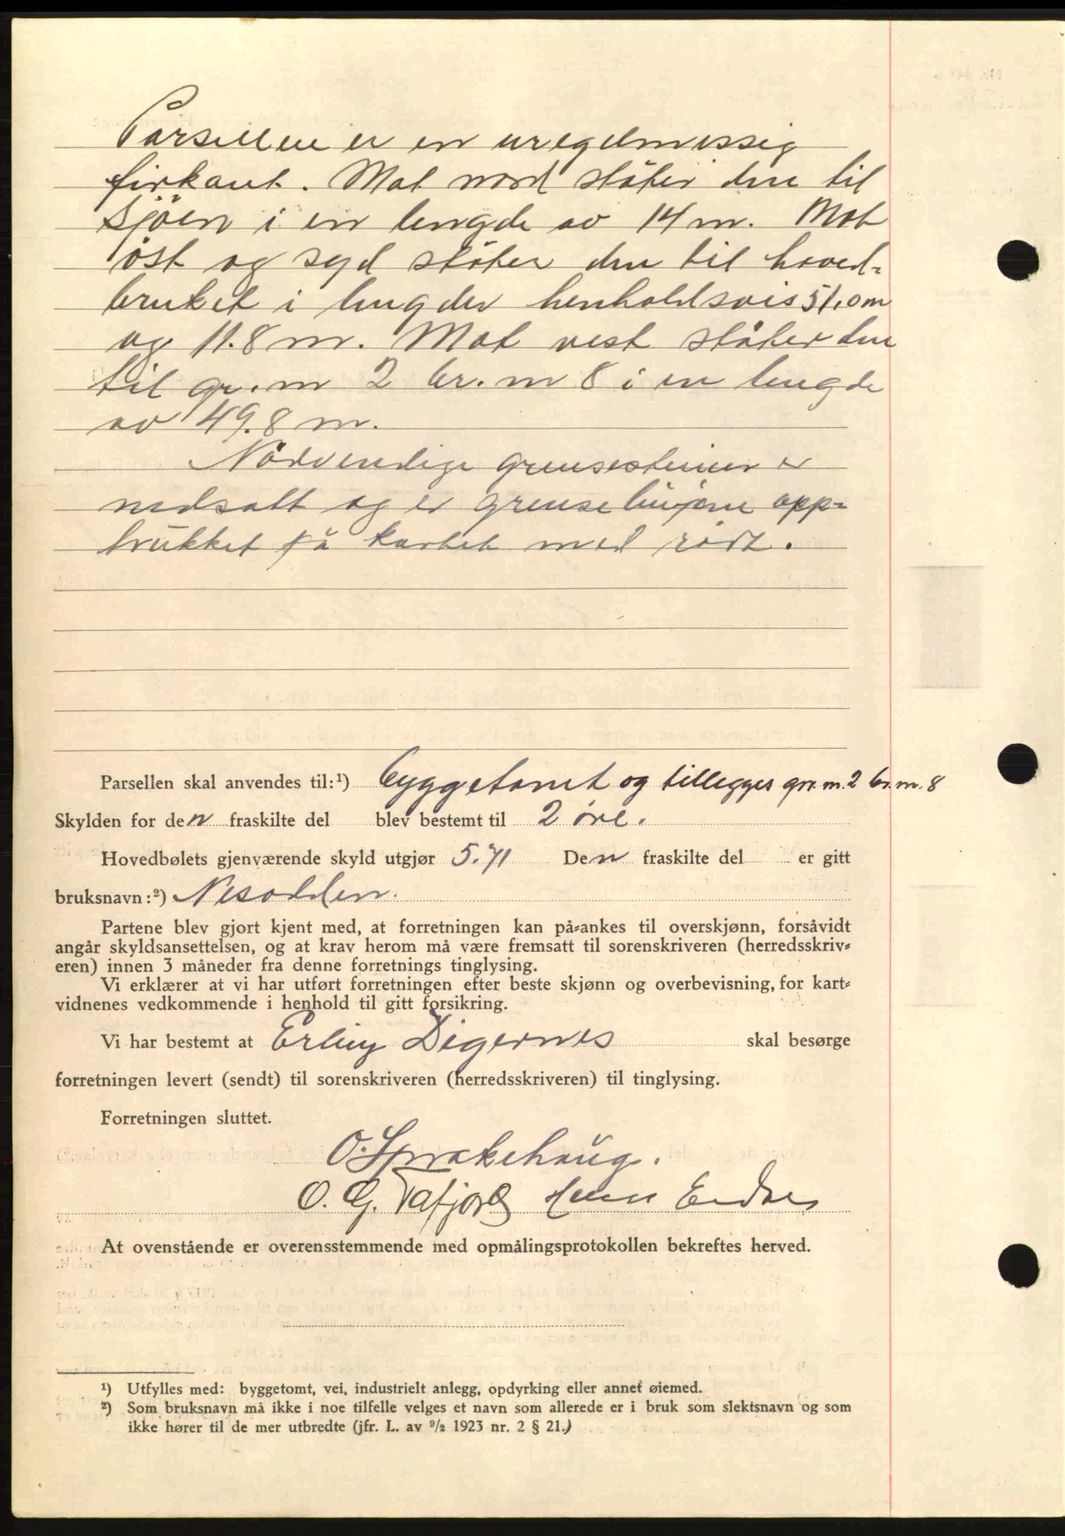 Parsellen er en uregelmessig
firkant. Mot nord støter den til
sjøen i en lengde av 14 m. Mot
øst og syd støter den til hoved-
bruket i lengder henholdsvis 51,0 m
og 11.8 m. Mot vest støter den
til gr. nr 2 br. nr 8 i en lengde
av 49.8 m.
Nødvendige grensesteiner er
nedsatt og er grenselinjene opp-
trukket på kartet med rødt.
Parsellen skal anvendes til:¹) byggetomt og tillegges gr. nr. 2 br. nr. 8
Skylden for den fraskilte del blev bestemt til 2 øre.
Hovedbølets gjenværende skyld utgjør 5.71 Den fraskilte del er gitt
bruksnavn:²) Nesodden.
Partene blev gjort kjent med, at forretningen kan på-ankes til overskjønn, forsåvidt
angår skyldsansettelsen, og at krav herom må være fremsatt til sorenskriveren (herredsskriv-
eren) innen 3 måneder fra denne forretnings tinglysing.
Vi erklærer at vi har utført forretningen efter beste skjønn og overbevisning, for kart-
vidnenes vedkommende i henhold til gitt forsikring.
Vi har bestemt at Erling Digernes skal besørge
forretningen levert (sendt) til sorenskriveren (herredsskriveren) til tinglysing.
Forretningen sluttet.
O. Sprakehaug.
O. G. Tafjord
At ovenstående er overensstemmende med opmålingsprotokollen bekreftes herved.
¹) Utfylles med: byggetomt, vei, industrielt anlegg, opdyrking eller annet øiemed.
²) Som bruksnavn må ikke i noe tilfelle velges et navn som allerede er i bruk som slektsnavn og som
ikke hører til de mer utbredte (jfr. L. av 9/2 1923 nr. 2 § 21.)